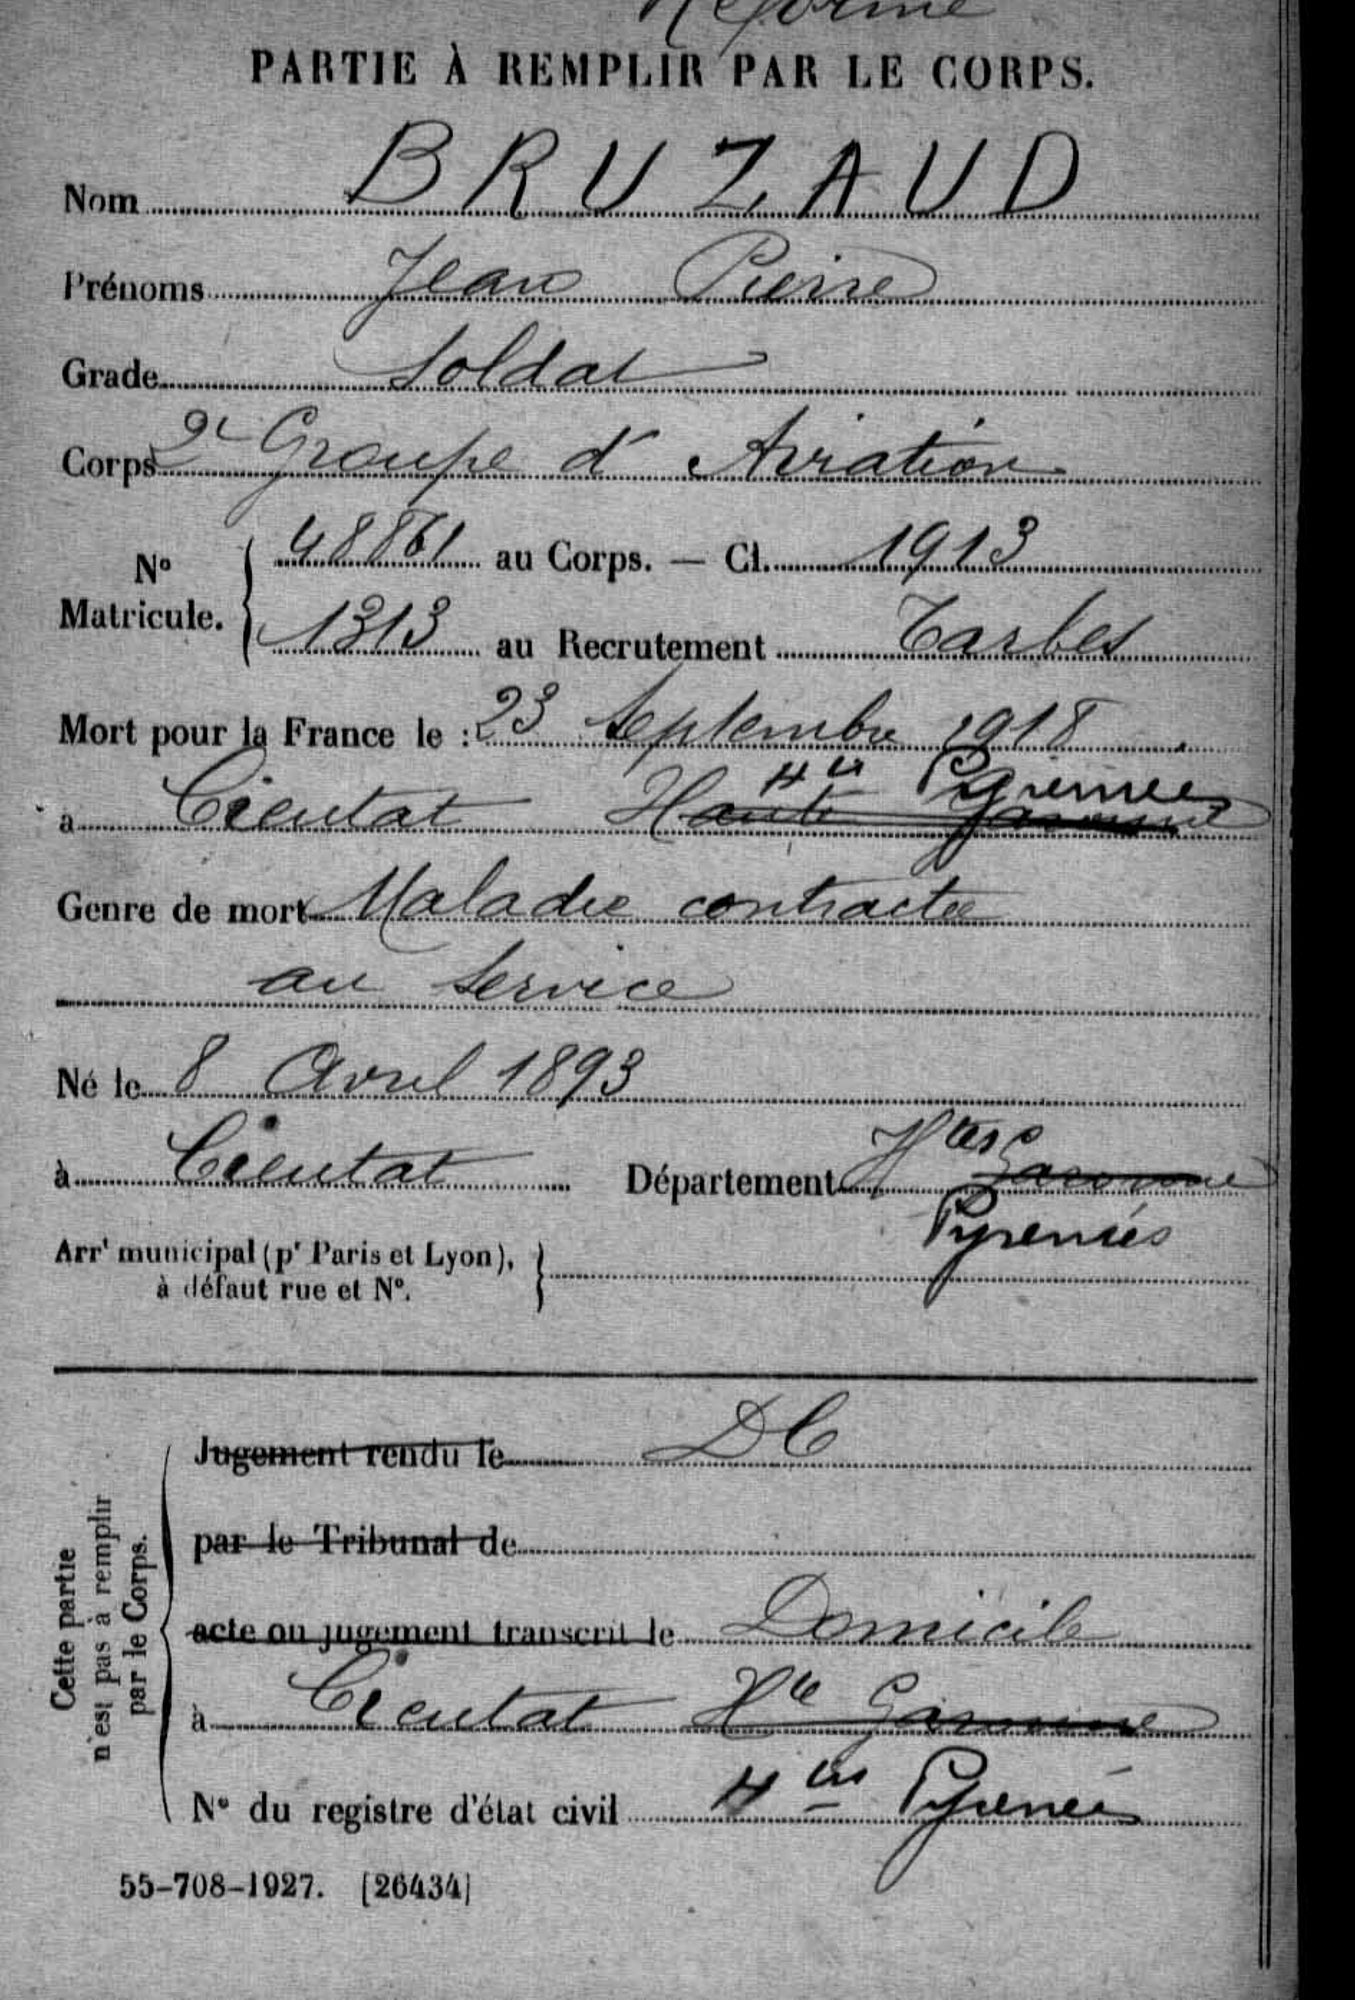 Réformé
PARTIE À REMPLIR PAR LE CORPS.
Nom BRUZAUD
Prénoms Jean Pierre
Grade Soldat
Corps 2e Groupe d'Aviation
N° Matricule. 48861 au Corps. — Cl. 1913
1313 au Recrutement Tarbes
Mort pour la France le : 23 Septembre 1918
Htes Pyrénées
à Cieutat Haute Garonne
Genre de mort Maladie contractée
au service
Né le 8 Avril 1893
à Cieutat Département Htes Garonne
Pyrenées
Arrt municipal (pr Paris et Lyon),
à défaut rue et N°.
Cette partie
n'est pas à remplir
par le Corps.
Jugement rendu le DC
par le Tribunal de
acte ou jugement transcrit le Domicile
à Cieutat Hte Garonne
N° du registre d'état civil Htes Pyrenées
55-708-1927. [26434]